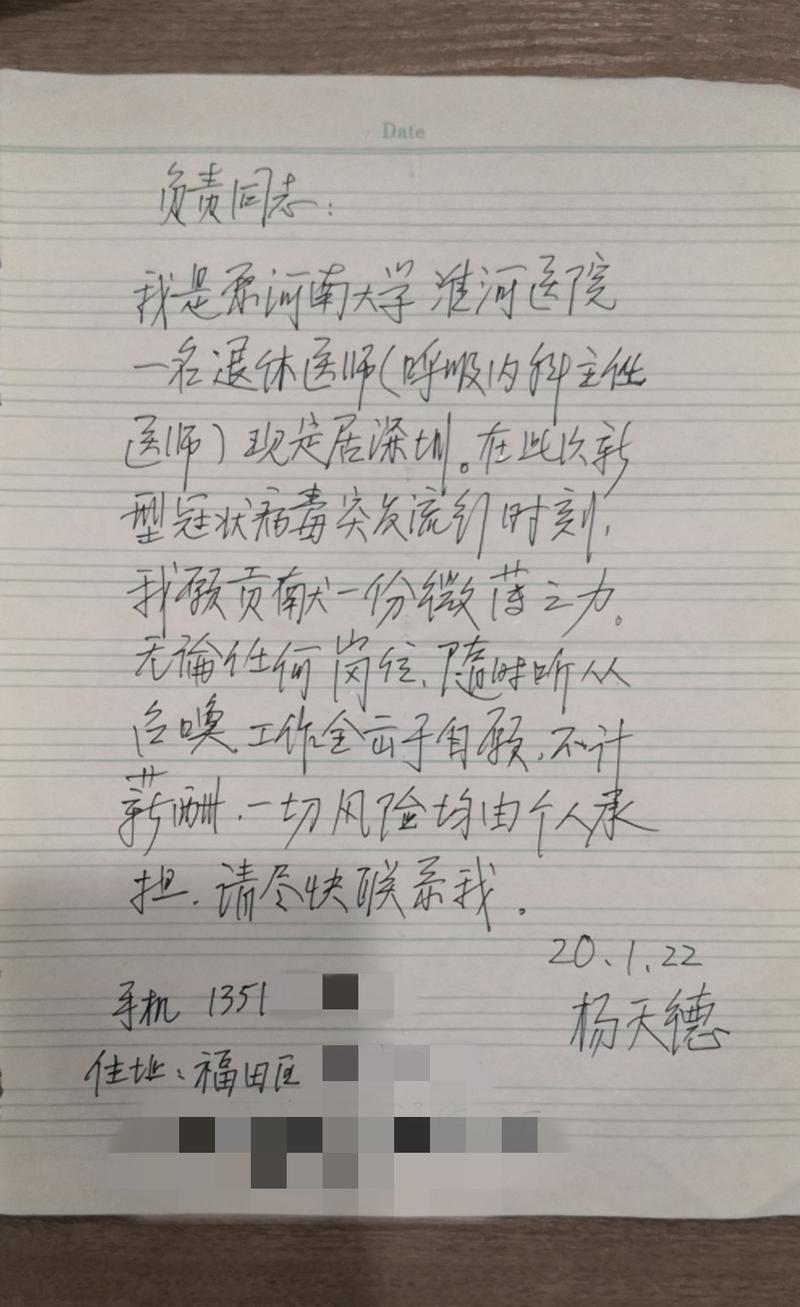 Date
负责同志：
我是原河南大学淮河医院
一名退休医师(呼吸内科主任
医师)现定居深圳。在此次新
型冠状病毒突发流行时刻，
我愿贡献一份微薄之力。
无论任何岗位，随时听从
召唤，工作全出于自愿，不计
薪酬，一切风险均由个人承
担，请尽快联系我。
20.1.22
杨天德
手机 1351
住址：福田区